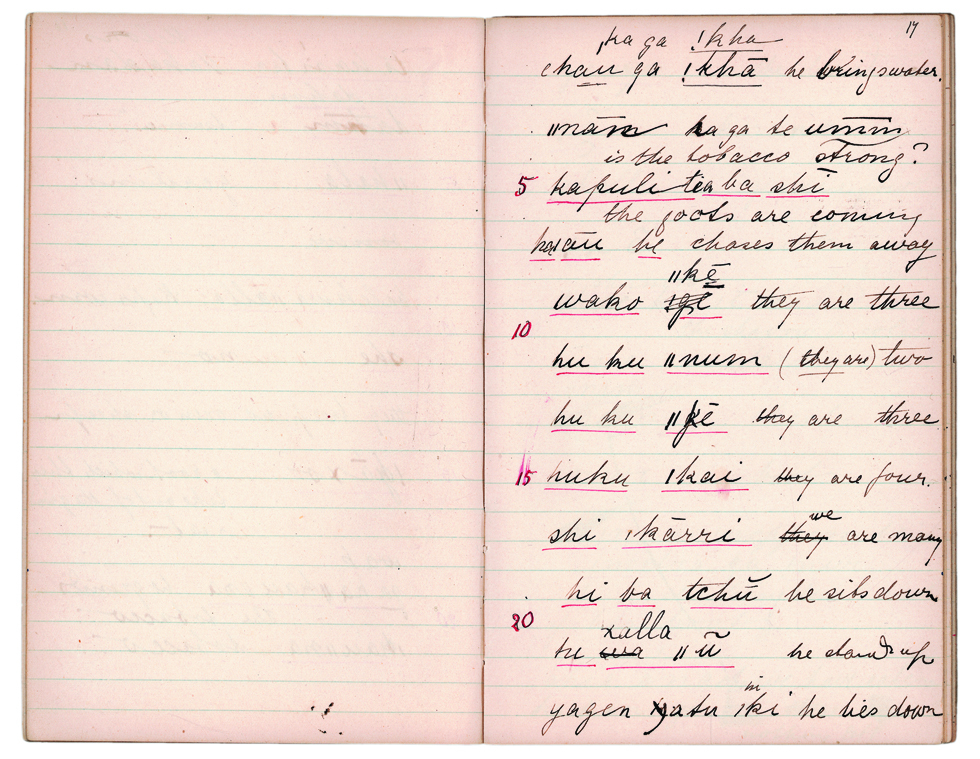 17
ka ga !kha
kau ga !khā he brings water.
ǁnām ka ga te umm
is the tobacco strong?
5 kapuli tea ba shī
the goots are coming
āu he chases them away
ǁkē
wako they are three
10
hu ku ǁnum (they are) two
hu ku ǁkē they are three
15 huku ǀkai they are four.
we
shi ǀkārri they are many
hi ba tchū he sits down
20
xalla
tu ǁū he stands up
in
yagen yatu ǀki he lies down